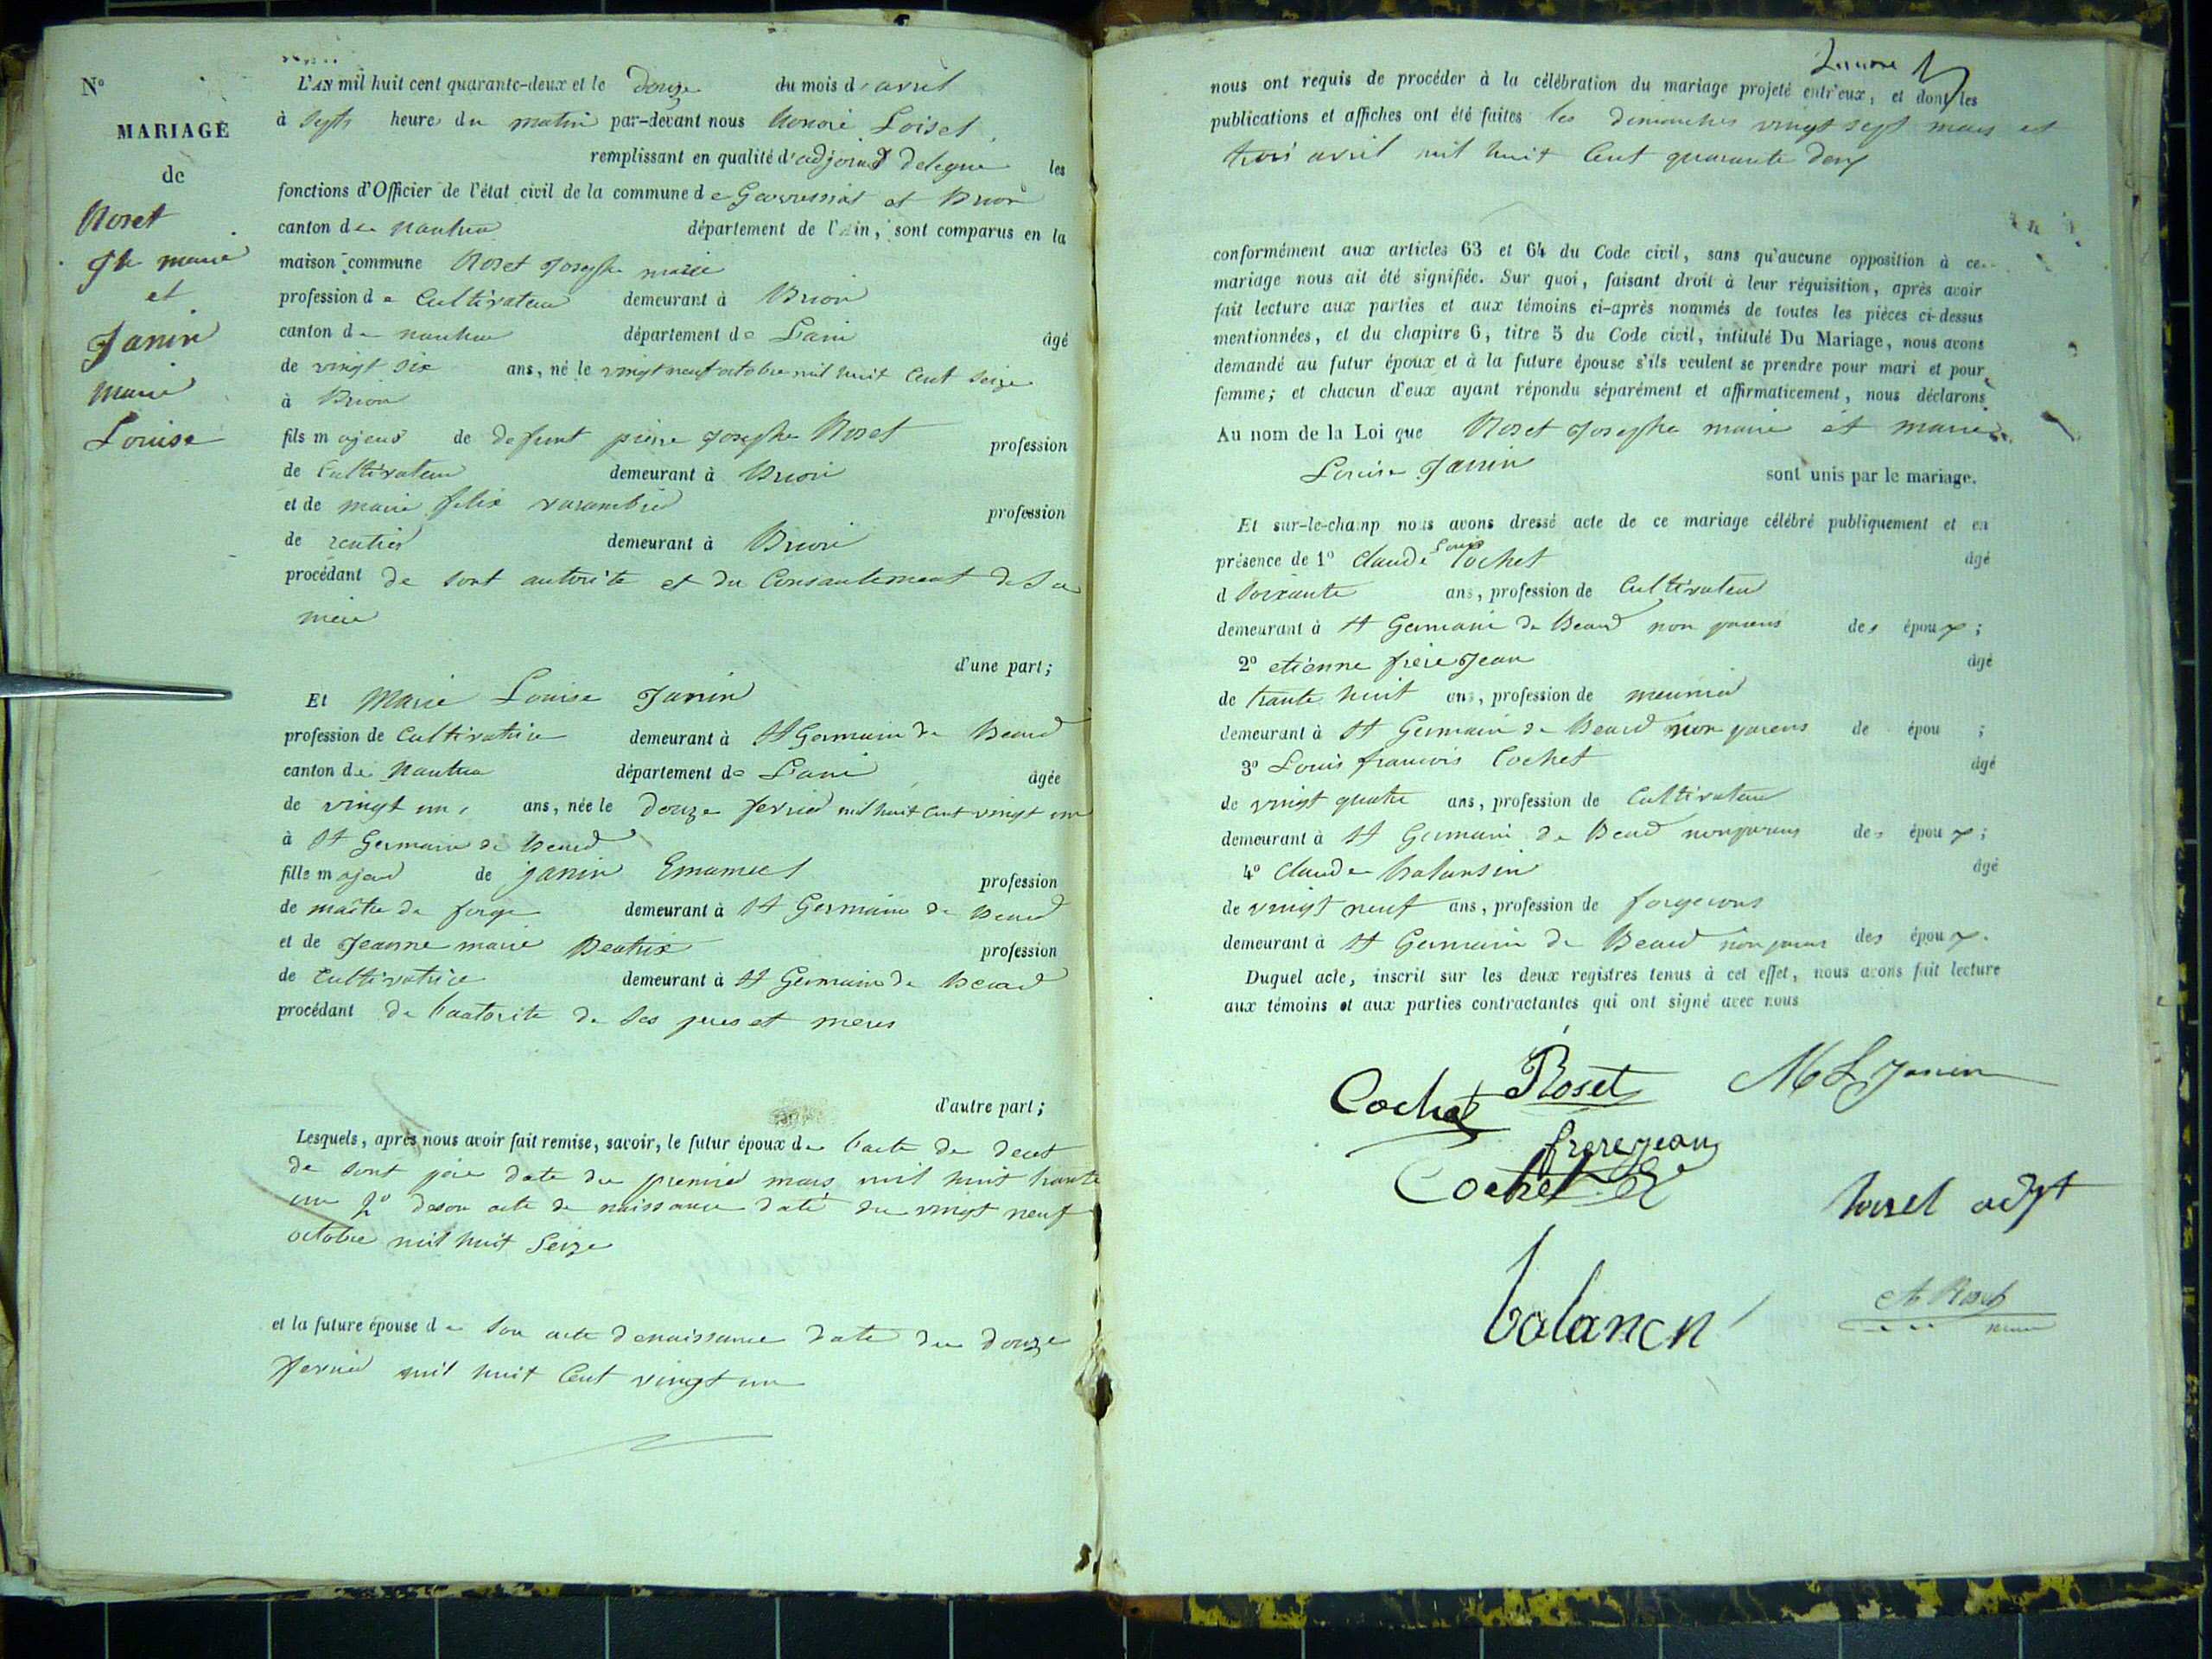 N°
MARIAGE
de
Roset
Jh marie
et
Janin
Marie
Louise
L'AN mil huit cent quarante-deux et le douze du mois d'avril
à sept heures du matin par-devant nous honoré Loisel
remplissant en qualité d'adjoint delegué les
fonctions d'Officier de l'état civil de la commune de Geovressiat et Brion
canton de nantua département de l'Ain, sont comparus en la
maison commune Roset Josephe marie
profession de Cultivateur demeurant à Brion
canton de nantua département de L'ain âgé
de vingt six ans, né le vingt neuf octobre mil huit Cent seize
à Brion
fils majeur de defunt pierre Josephe Roset profession
de Cultivateur demeurant à Brion
et de marie felix varambié profession
de rentier demeurant à Brion
procédant de sont autorité et du Consantement de Sa
mere
d'une part;
Et Marie Louise Janin
profession de Cultivatrice demeurant à St Germain de Beard
canton de Nantua département de L'ain âgée
de vingt un ans, née le douze fevrier mil huit Cent vingt un
à St Germain de Beard
fille majeur de janin Emanuel profession
de maitre de forge demeurant à St Germain de Beard
et de Jeanne marie Beatrix profession
de Cultivatrice demeurant à St Germain de Beard
procédant de l'autorite de Ses peres et meres
d'autre part;
Lesquels, après nous avoir fait remise, savoir, le futur époux de l'acte de deces
de sont père date du premier mars mil huit trante
un 2° deson acte de naissance daté du vingt neuf
octobre mil huit Seize
et la future épouse de Son acte denaissance date du douze
fevrier mil huit Cent vingt un
nous ont requis de procéder à la célébration du mariage projeté entr'eux, et dont les
publications et affiches ont été faites les dimanches vingt sept mars et
trois avril mil huit Cent quarante deux
conformément aux articles 63 et 64 du Code civil, sans qu'aucune opposition à ce
mariage nous ait été signifiée. Sur quoi, faisant droit à leur réquisition, après avoir
fait lecture aux parties et aux témoins ci-après nommés de toutes les pièces ci-dessus
mentionnées, et du chapitre 6, titre 5 du Code civil, intitulé Du Mariage, nous avons
demandé au futur époux et à la future épouse s'ils veulent se prendre pour mari et pour
femme; et chacun d'eux ayant répondu séparément et affirmativement, nous déclarons
Au nom de la Loi que Roset Josephe marie et marie
Louise Janin sont unis par le mariage.
Et sur-le-champ nous avons dressé acte de ce mariage célébré publiquement et en
présence de 1° Claude Louis Cochet âgé
d Soixante ans, profession de Cultivateur
demeurant à St Germain de Beard non parens des époux;
2° etienne frere Jean âgé
de trante huit ans, profession de meunier
demeurant à St Germain de Beard non parens de épou ;
3° Louis francois Cochet âgé
de vingt quatre ans, profession de Cultivateur
demeurant à St Germain de Beard non parens des époux;
4° Claude balansin âgé
de vingt neuf ans, profession de forgerons
demeurant à St Germain de Beard non parens des époux.
Duquel acte, inscrit sur les deux registres tenus à cet effet, nous avons fait lecture
aux témoins et aux parties contractantes qui ont signé avec nous
Cochet Roset M L Janin
frerejean
Cochet
loisel adjt